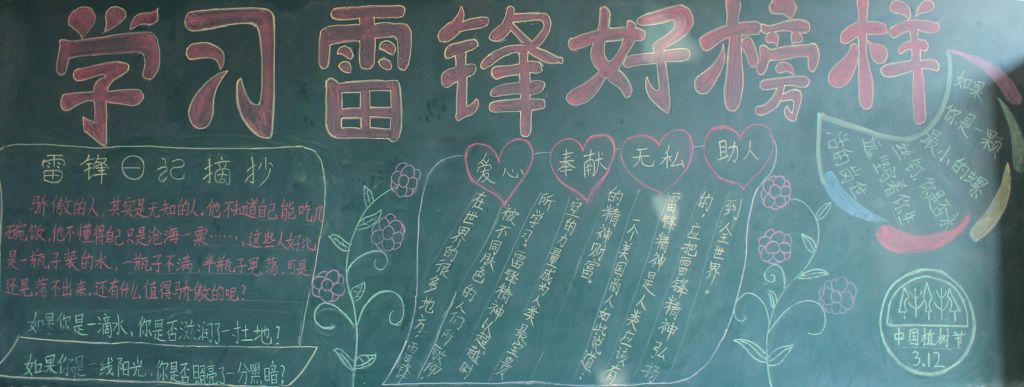 学习雷锋好榜样
雷锋日记摘抄
骄傲的人，其实是无知的人。他不知道自己能吃几
碗饭，他不懂得自己只是沧海一粟……。这些人好比
是一瓶子装的水，一瓶子不满，半瓶子晃荡。可是
还晃荡不出来。还有什么值得骄傲的呢？
如果你是一滴水，你是否滋润了一寸土地？
如果你是一线阳光，你是否照亮了一分黑暗？
爱心
奉献
无私
助人
在世界的很多地方，雷锋
被不同肤色的人们所
所学习，雷锋精神以超越
的力量成为人类最宝贵
的精神财富。
一个美国商人如此说道：
雷锋精神是人类应该有
的，应把雷锋精神弘扬
到全世界。
如果
你是一颗
最小的螺
丝钉，你是否永
远坚守着你生
活的岗位
中国植树节
3.12